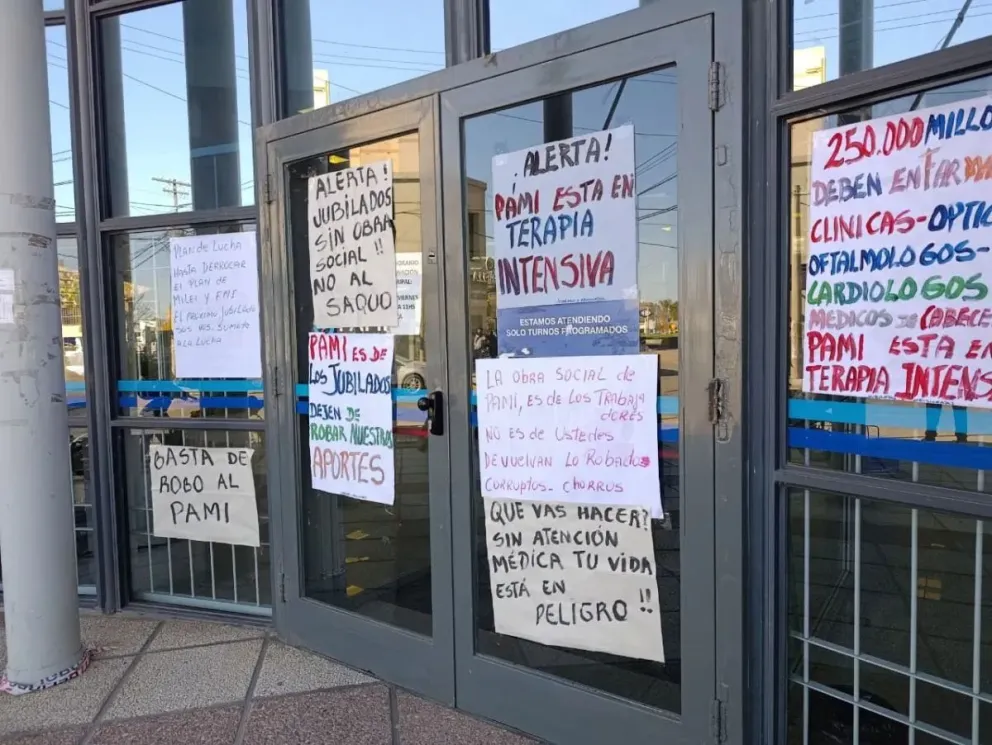 PLAN de LUCHA
HASTA DERROCAR
EL PLAN de
MILEI Y FMI
EL PROXIMO JUBILADO
SOS VOS. SUMATE
A LA LUCHA
BASTA DE
ROBO AL
PAMI
ALERTA!
JUBILADOS
SIN OBRA
SOCIAL !!
NO AL
SAQUEO
PAMI es de
Los JUBILADOS
DEJEN DE
ROBAR NUESTROS
APORTES
¡ALERTA!
PAMI ESTA EN
TERAPIA
INTENSIVA
ESTAMOS ATENDIENDO
SOLO TURNOS PROGRAMADOS
LA Obra SOCIAL de
PAMI, ES de LOS TRABAJA
DORES
NO ES de USTEDES
DEVUELVAN LO ROBADO
CORRUPTOS - CHORROS
QUE VAS HACER?
SIN ATENCIÓN
MÉDICA TU VIDA
ESTÁ EN
PELIGRO !!
250.000 MILLO
DEBEN EN FARMA
CLINICAS - OPTIC
OFTALMOLOGOS -
CARDIOLOGOS
MEDICOS de CABECE
PAMI ESTA EN
TERAPIA INTENS